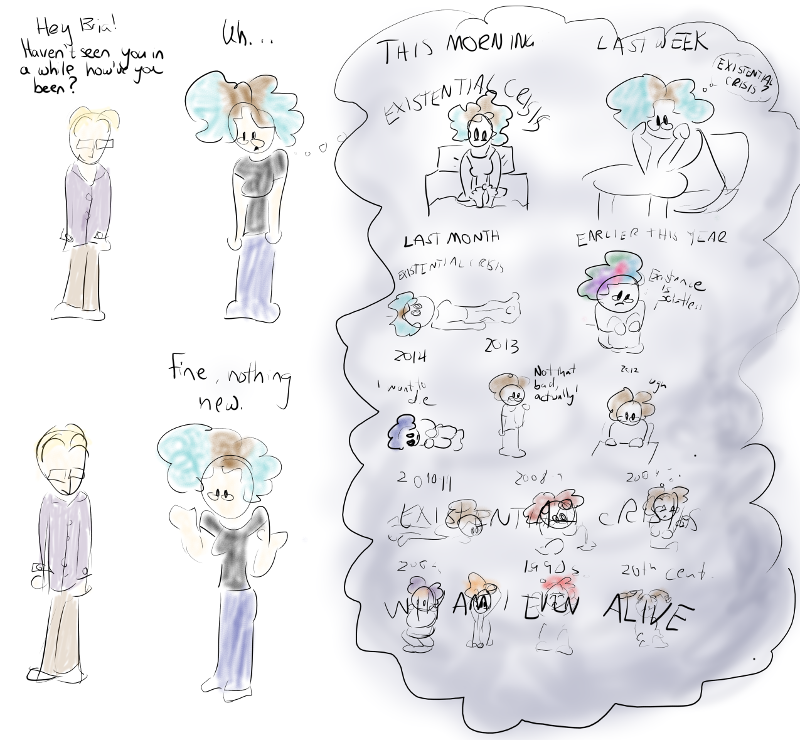 Hey Bria!
Haven't seen you in
a while how've you
been?
Uh...
THIS MORNING
EXISTENTIAL CRISIS
LAST WEEK
EXISTENTIAL
CRISIS?
LAST MONTH
EXISTENTIAL CRISIS
EARLIER THIS YEAR
Existence
is
pointless
2014
I want to
die
2013
Not that
bad,
actually!
2012
ugh
Fine, nothing
new.
EXISTENTIAL CRISIS
1990s
20th cent.
WHY AM I EVEN ALIVE